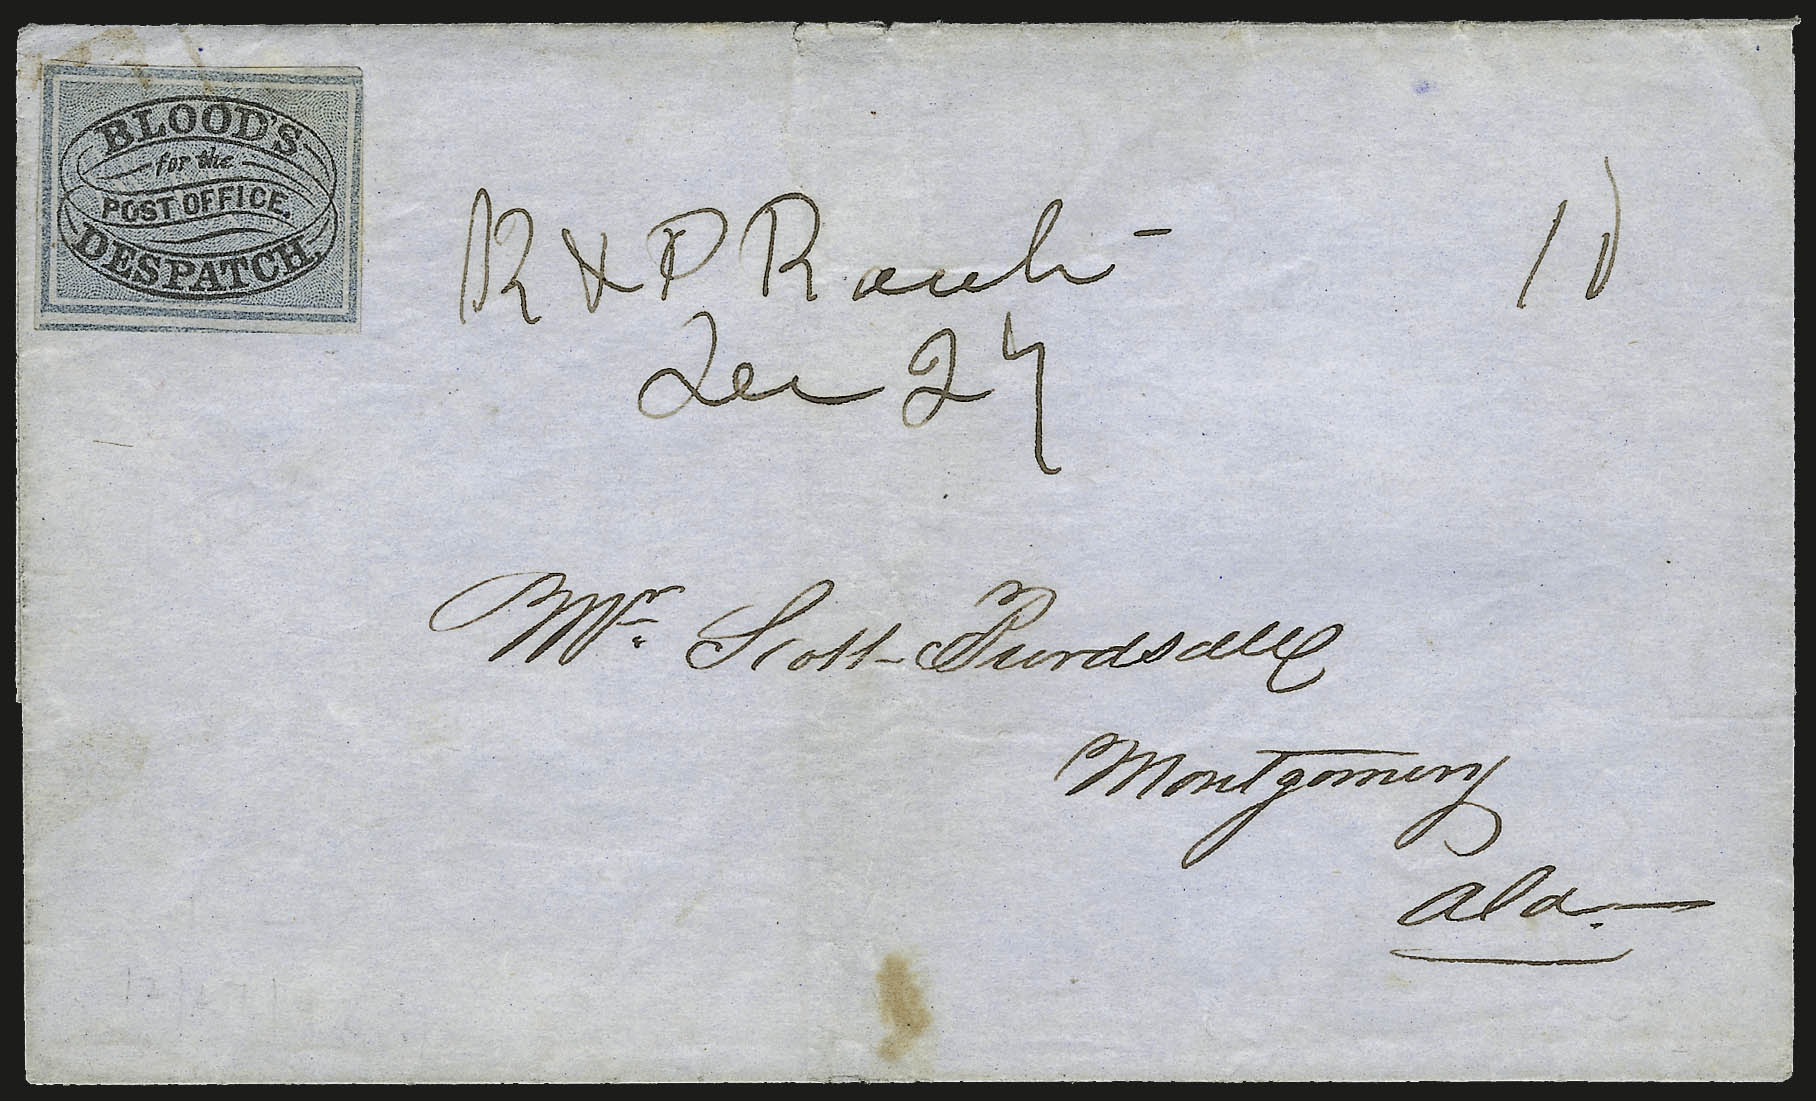 BLOOD'S
for the
POST OFFICE.
DESPATCH.
R & P Rail
Dec 27
10
Mr. Scott
Montgomery
Ala.